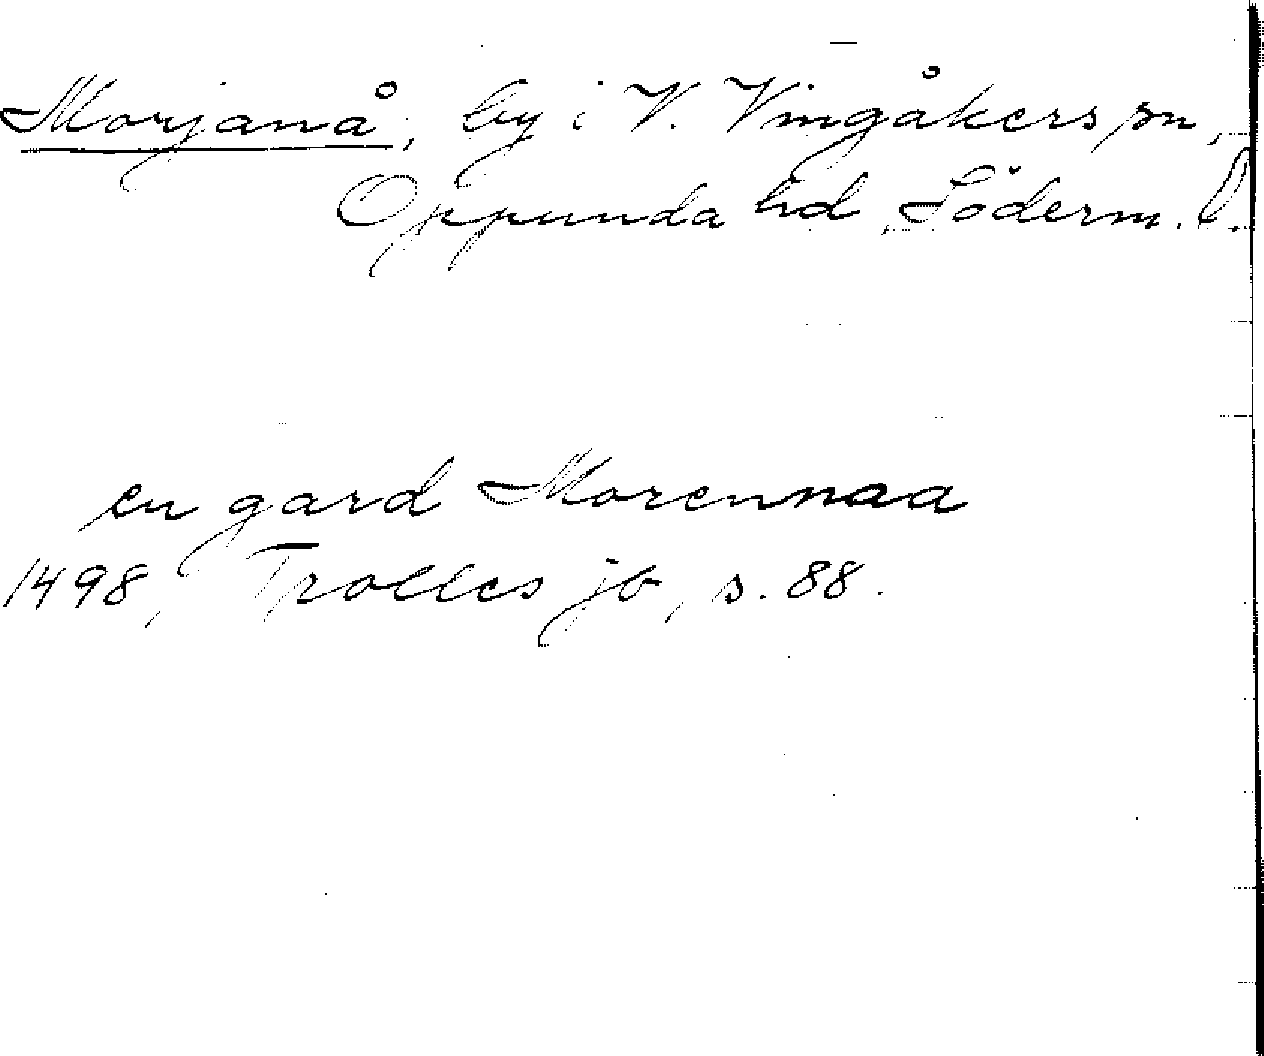 Morjanå, by i V. Vingåkers sn,
Oppunda hd, Söderm. l.
en gard Morennaa
1498, Trolles jb, s. 88.